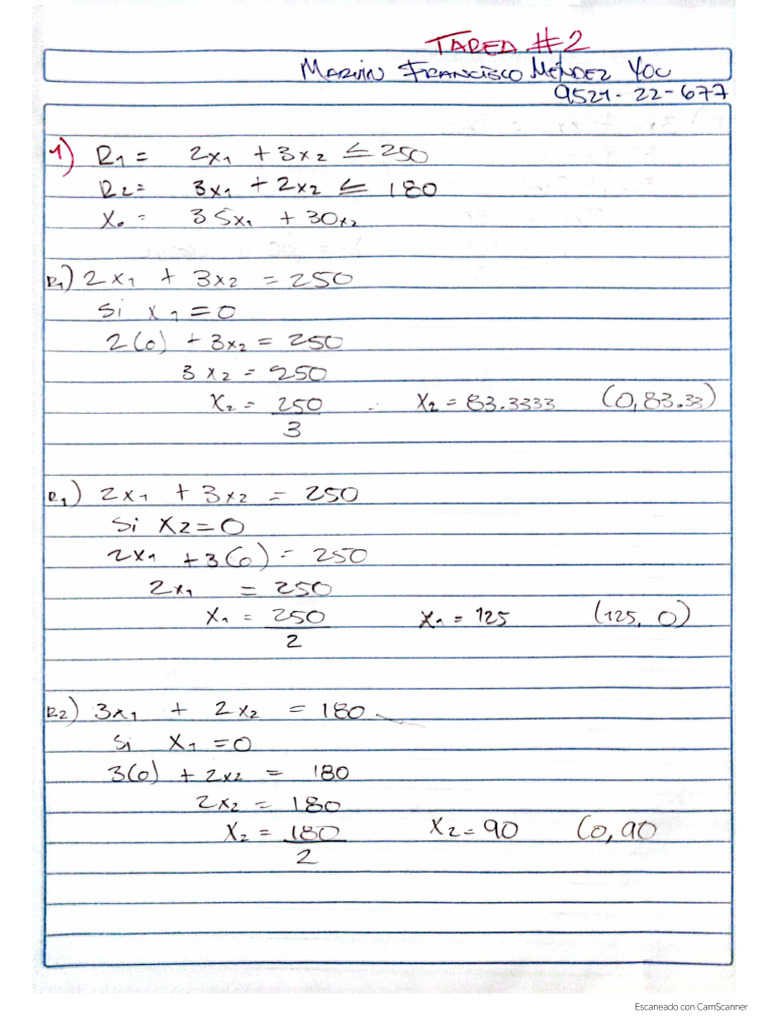 TAREA #2
Marvin Francisco Méndez Yoc
9521-22-677
1) R1 = 2x1 + 3x2 ≤ 250
R2= 3x1 + 2x2 ≤ 180
X0 = 35x1 + 30x2
R1) 2x1 + 3x2 = 250
Si x1 = 0
2(0) + 3x2 = 250
3x2 = 250
x2 = 250/3 ∴ x2 = 83.3333 (0,83.33)
R1) 2x1 + 3x2 = 250
Si X2=0
2x1 + 3(0) = 250
2x1 = 250
x1 = 250/2 x1 = 125 (125, 0)
R2) 3x1 + 2x2 = 180
Si X1 = 0
3(0) + 2x2 = 180
2x2 = 180
X2 = 180/2 X2=90 (0,90
Escaneado con CamScanner